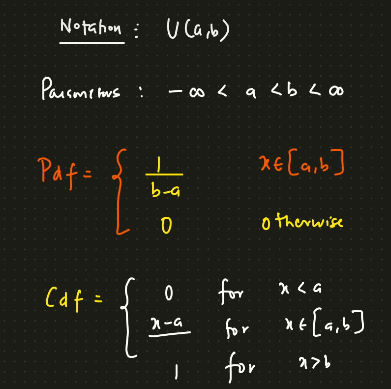 Notation : U(a,b)
Parameters : -∞ < a < b < ∞
Pdf = { 1/(b-a) x ∈ [a,b]
0 otherwise
Cdf = { 0 for x < a
x-a for x ∈ [a,b]
1 for x > b